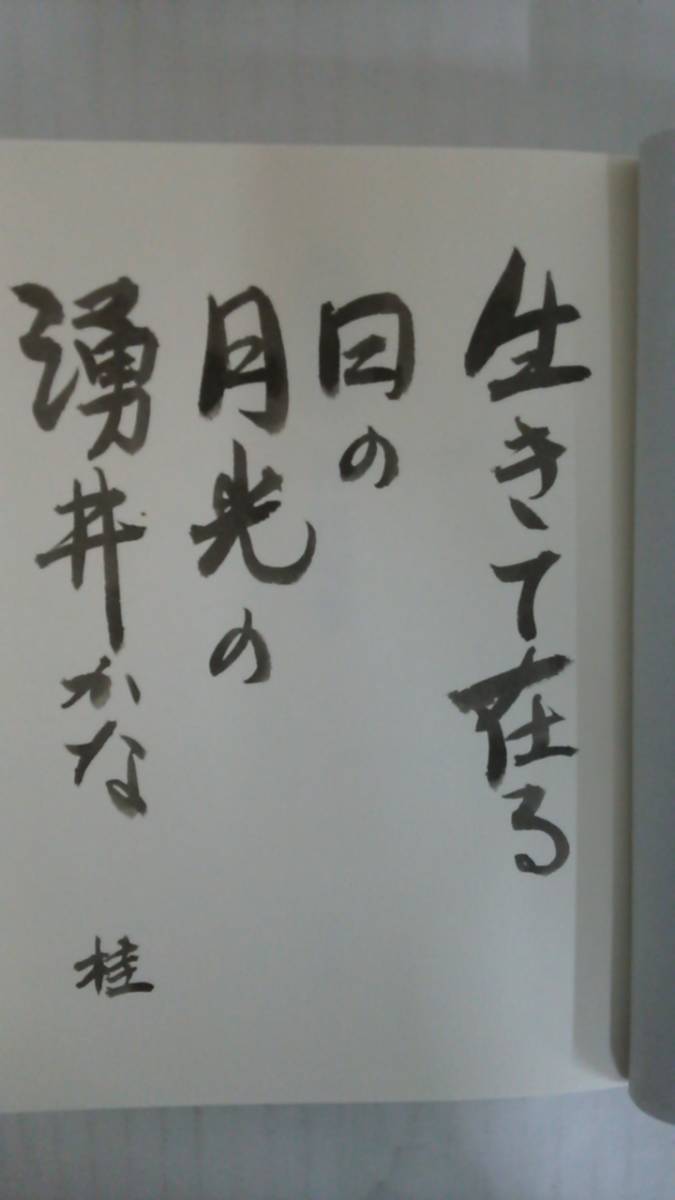 生きて在る
日の
月光の
湧井かな
桂